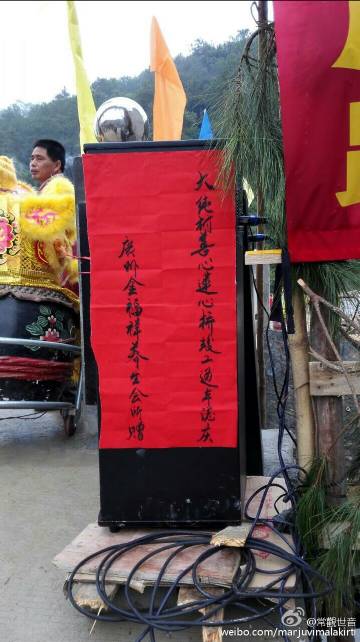 大村善心連心橋竣工通車誌庆
廣州金福祥养生会所贈
@常觀世音
weibo.com/marjuvimalakirti